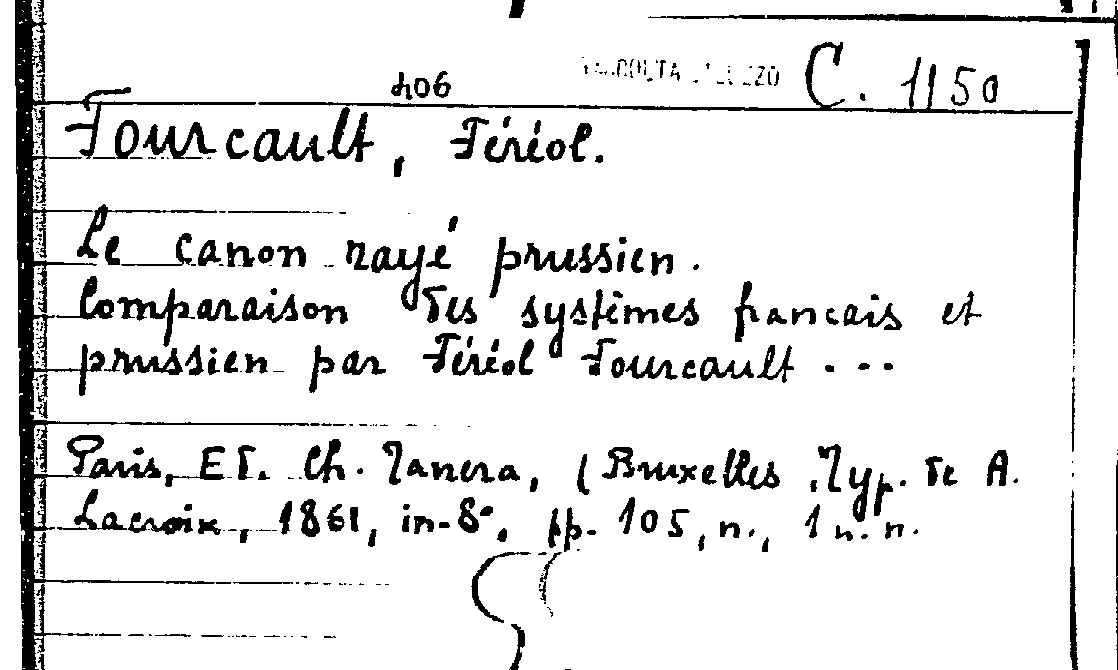 C. 1150
406
Fourcault, Féréol.
Le canon rayé prussien.
Comparaison des systèmes francais et
prussien par Féréol Fourcault ...
Paris, Ed. Ch. Tanera, (Bruxelles, Typ. de A.
Lacroix, 1861, in-8°, pp. 105, n., 1 n. n.